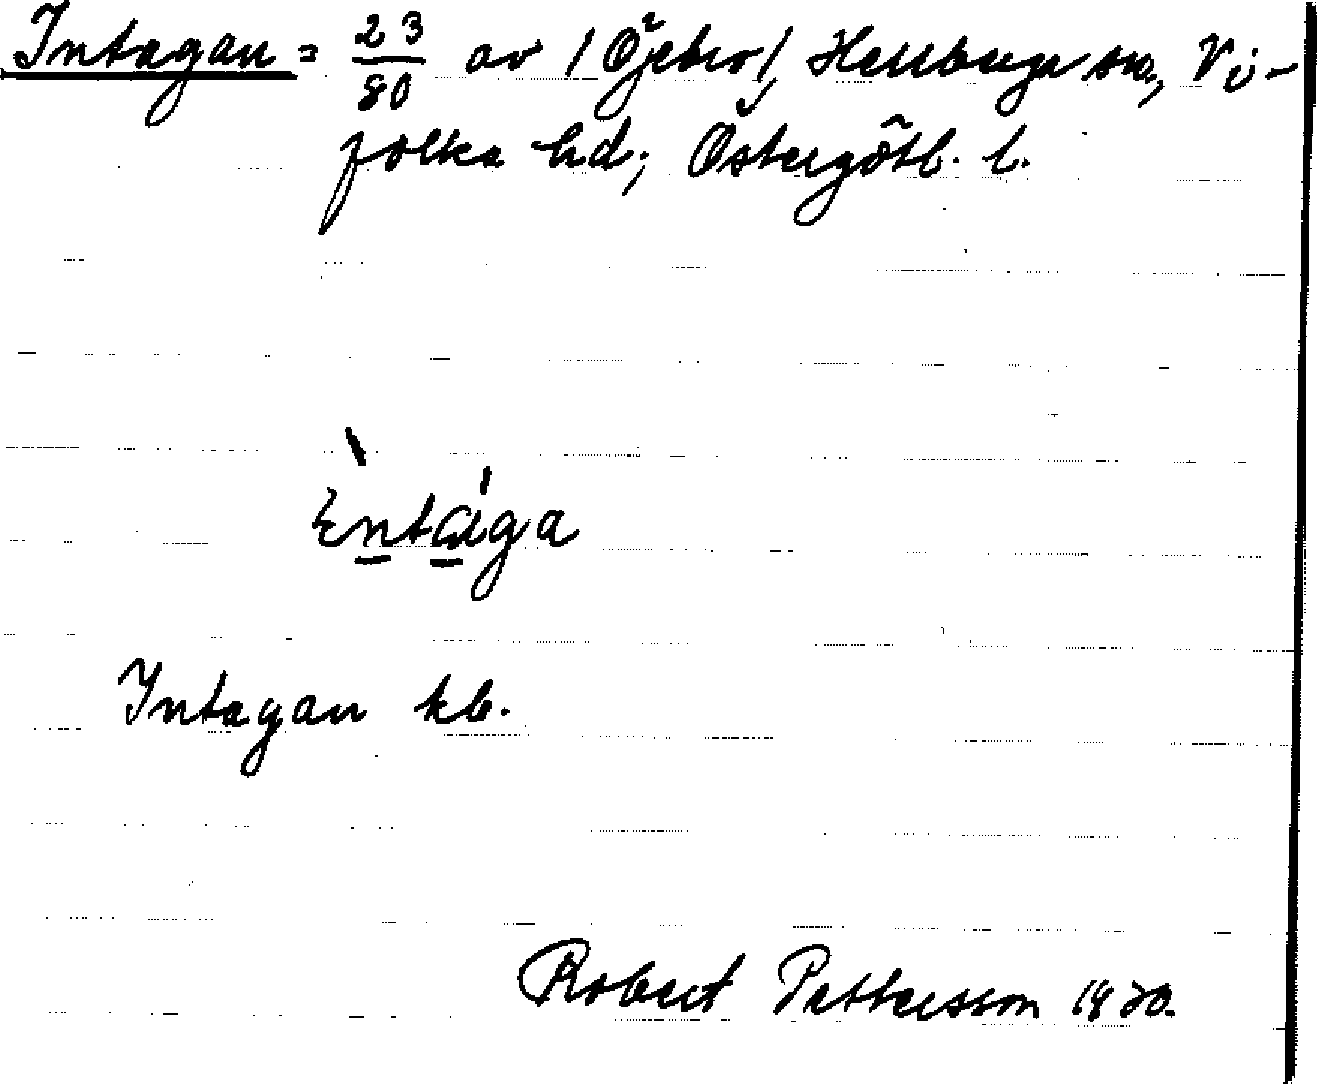 Intagan = 23/80 av /Öjebro/, Herrberga sn, Vi-
folka hd; Östergötl. l.
Èntɑ́ga
Intagan kb.
Robert Pettersson 1920.